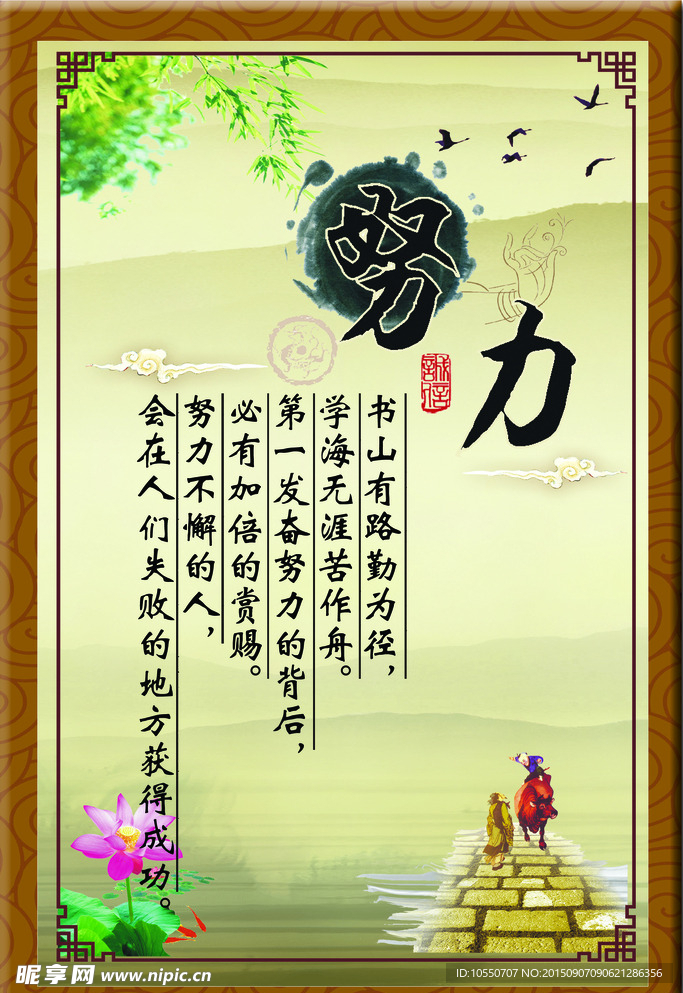 努力
誠信
书山有路勤为径，
学海无涯苦作舟。
第一发奋努力的背后，
必有加倍的赏赐。
努力不懈的人，
会在人们失败的地方获得成功。
昵享网 www.nipic.cn
ID:10550707 NO:20150907090621286356